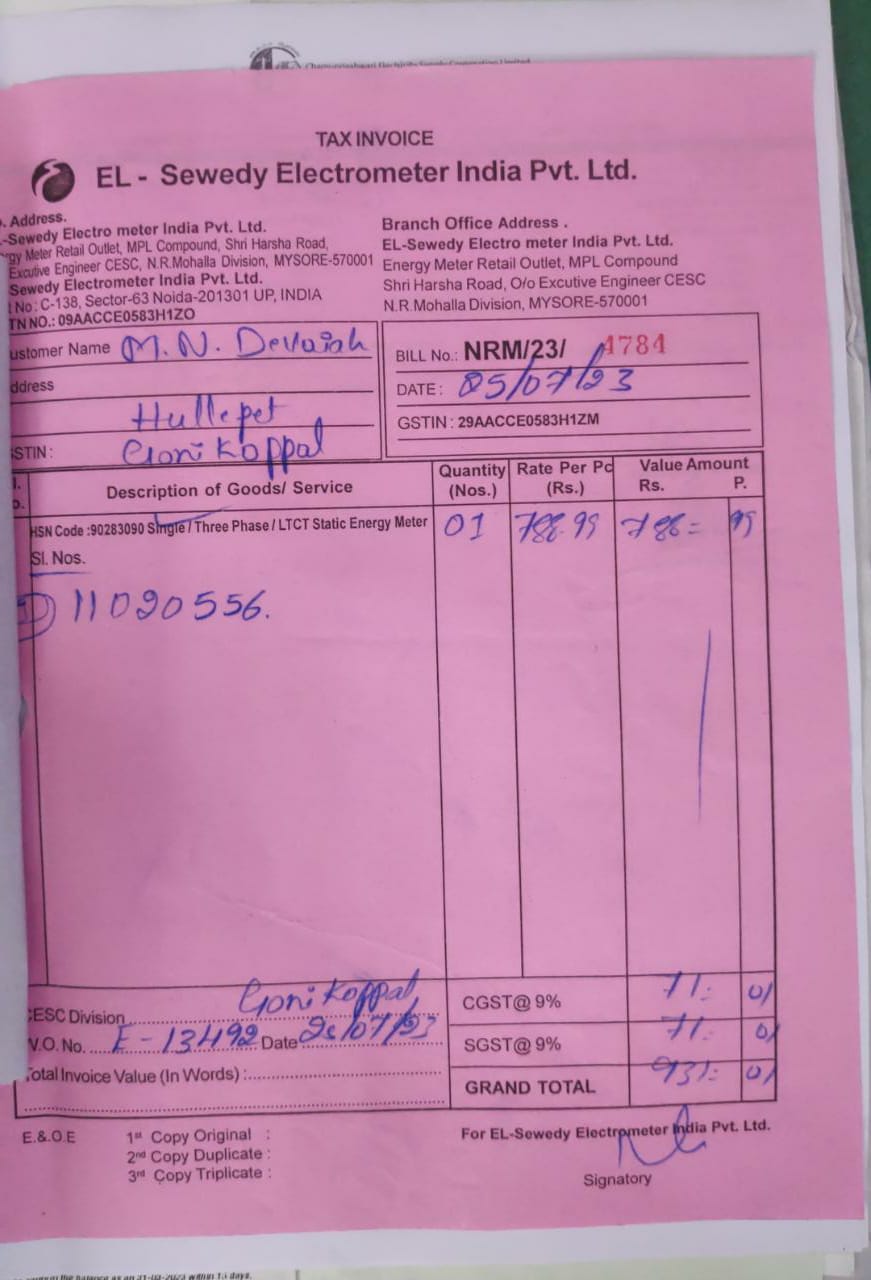 Chamundeshwari Electricity Supply Corporation Limited
TAX INVOICE
EL - Sewedy Electrometer India Pvt. Ltd.
. Address.
-Sewedy Electro meter India Pvt. Ltd.
rgy Meter Retail Outlet, MPL Compound, Shri Harsha Road,
Excutive Engineer CESC, N.R.Mohalla Division, MYSORE-570001
Sewedy Electrometer India Pvt. Ltd.
No : C-138, Sector-63 Noida-201301 UP, INDIA
TN NO.: 09AACCE0583H1ZO
Branch Office Address .
EL-Sewedy Electro meter India Pvt. Ltd.
Energy Meter Retail Outlet, MPL Compound
Shri Harsha Road, O/o Excutive Engineer CESC
N.R.Mohalla Division, MYSORE-570001
ustomer Name M. N. Devaiah
ddress
Hullepet
STIN : Goni Koppal
BILL No.: NRM/23/ 4784
DATE : 05/07/23
GSTIN : 29AACCE0583H1ZM
Description of Goods/ Service Quantity (Nos.) Rate Per Pc (Rs.) Value Amount Rs. P.
HSN Code :90283090 Single / Three Phase / LTCT Static Energy Meter 01 788.99 788= 99
Sl. Nos.
1) 11090556.
CESC Division Goni Koppal
V.O. No. E-13492 Date 26/07/23
Total Invoice Value (In Words) :
CGST@ 9% 71: 01
SGST@ 9% 71: 01
GRAND TOTAL 931: 01
E.&.O.E
1st Copy Original :
2nd Copy Duplicate :
3rd Copy Triplicate :
For EL-Sewedy Electrometer India Pvt. Ltd.
Signatory
the balance as on 31-03-2023 within 15 days.